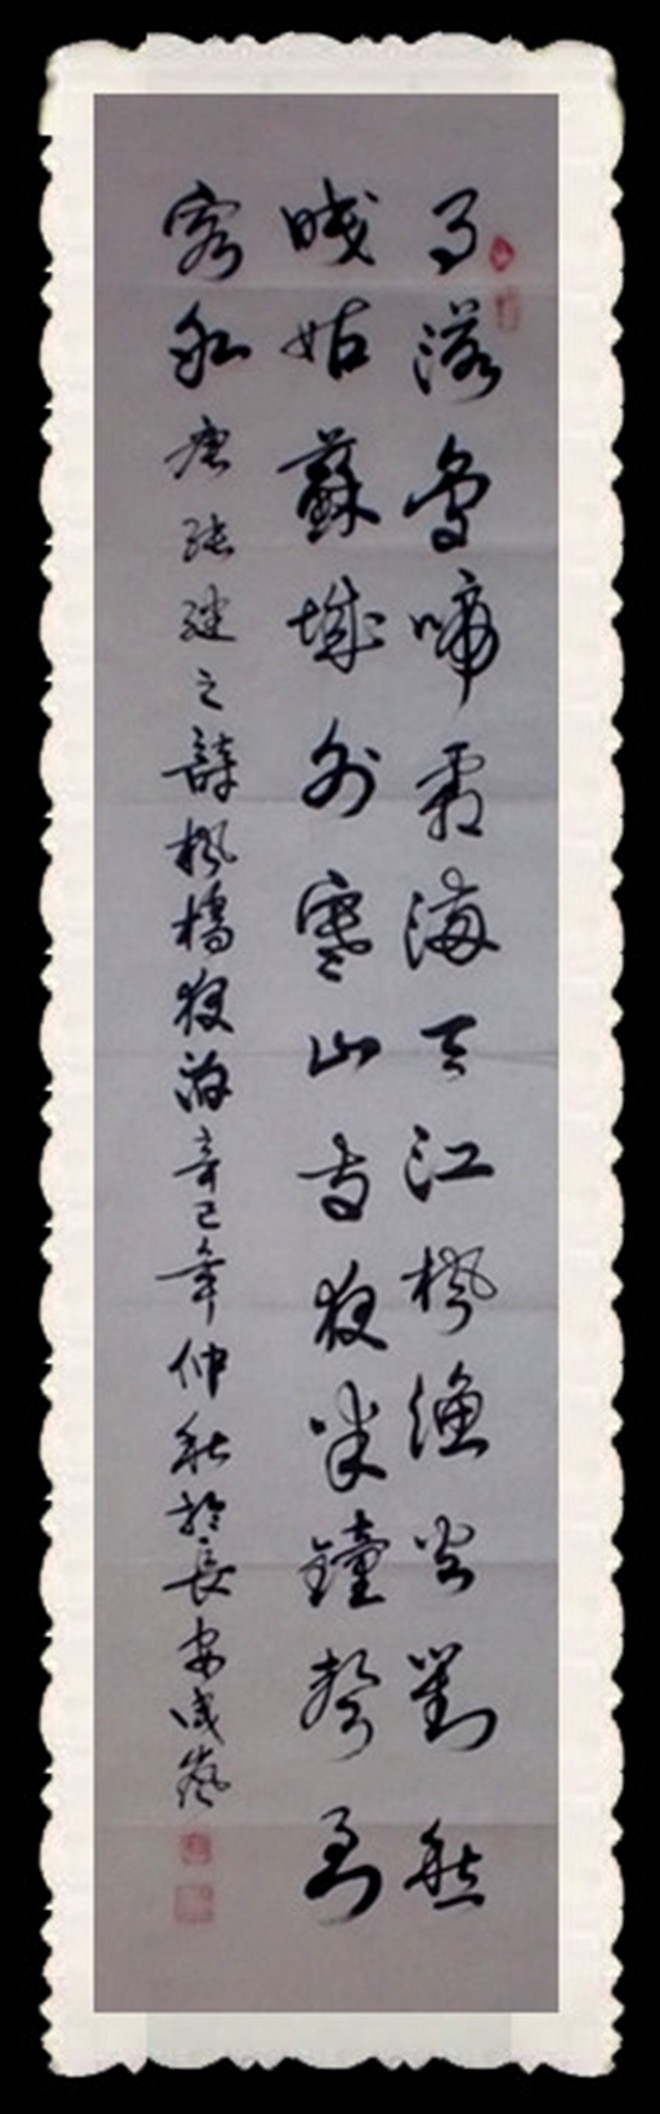 月落烏啼霜滿天江楓漁火對愁
眠姑蘇城外寒山寺夜半鐘聲到
客船唐張繼之詩楓橋夜泊辛巳年仲秋於長安成